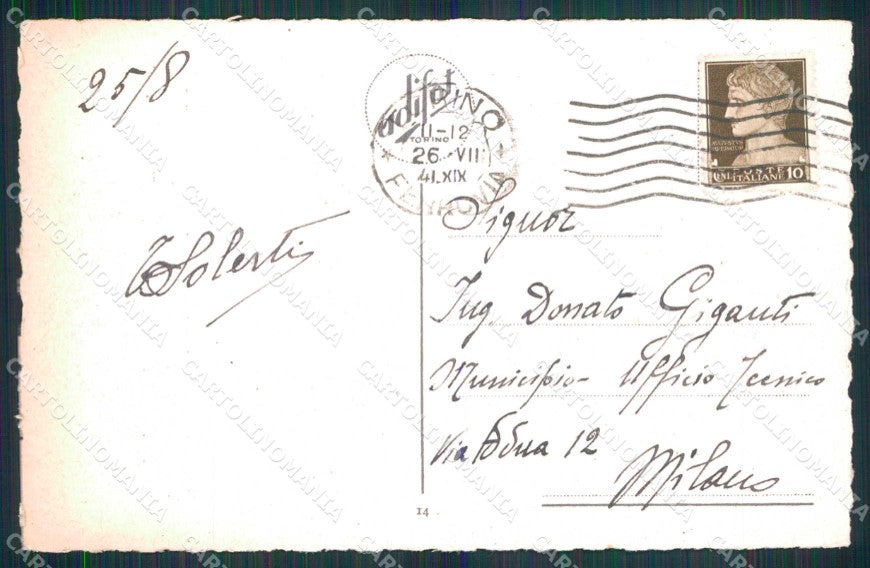 25/8
Solerti
adifat
TORINO
TORINO
11-12
26·VII
41.XIX
FERROVIA
POSTE
ITALIANE 10
Signor
Ing Donato Giganti
Municipio- Ufficio Tecnico
Via 12
Milano
14
CARTOLINOMANIA